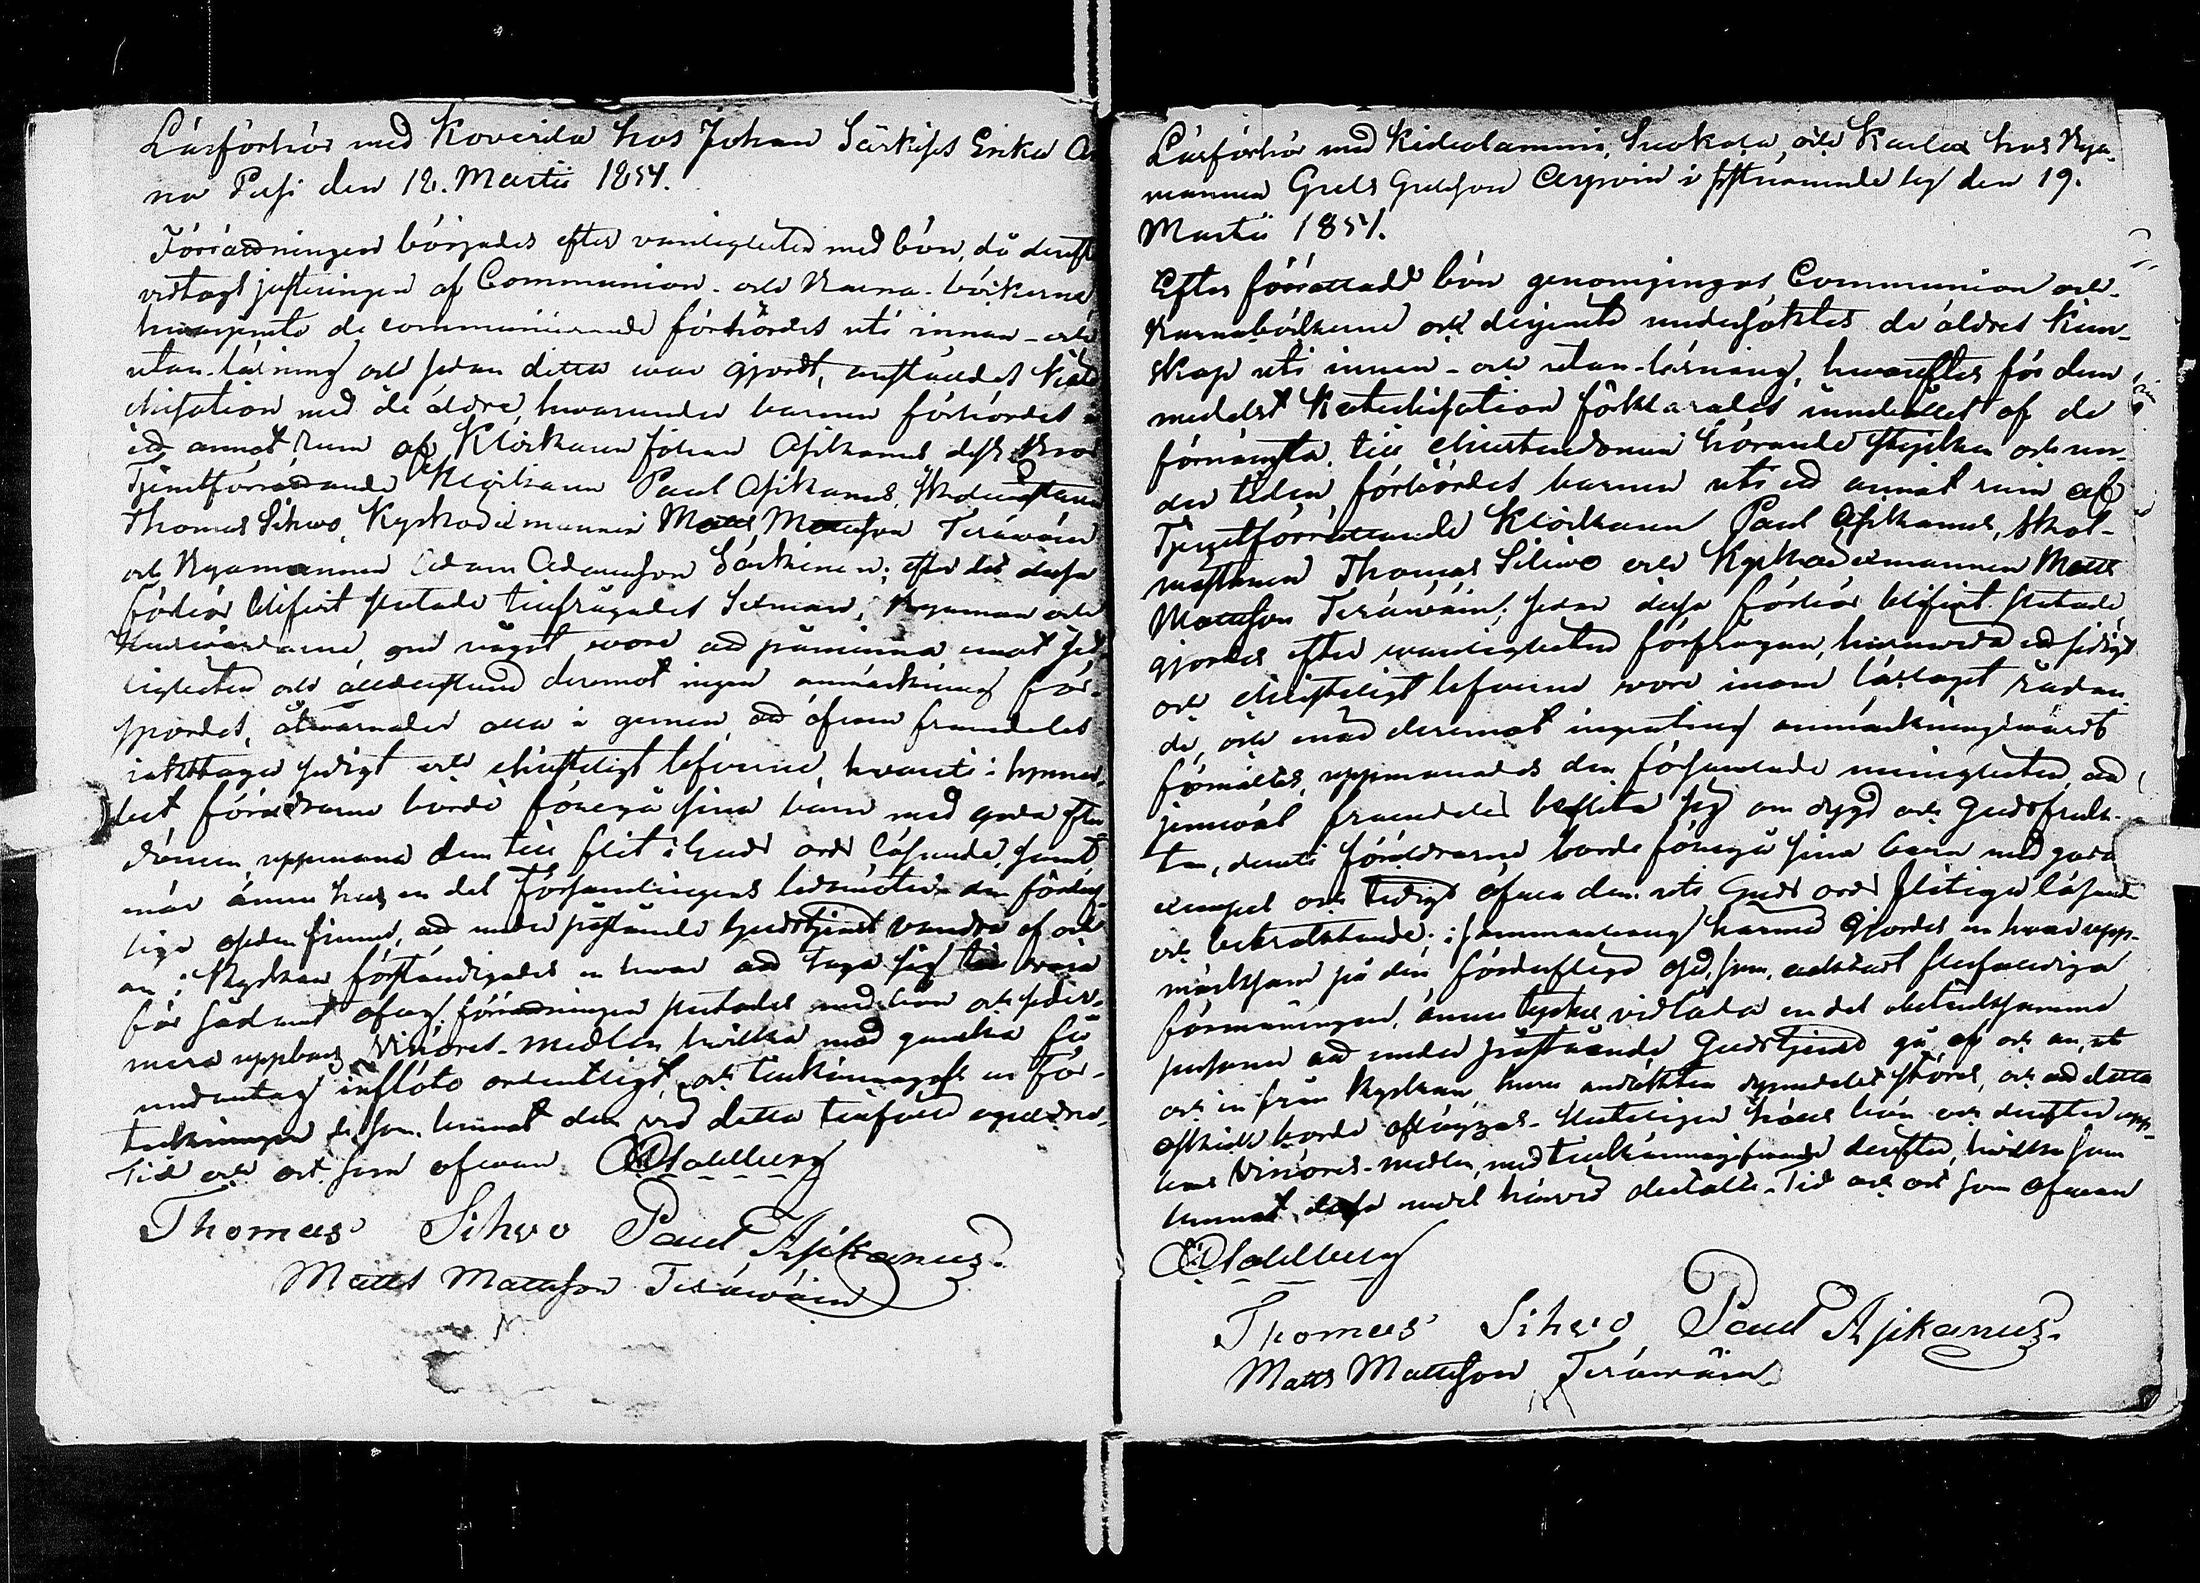 Läsförhör med Koverila hos Johan Särkises Enka An
na Pusi den 12. Martii 1854.
Förrädningen börjades efter vanligheten med bön, då dereft
vidtogs justeringen af Communion- och Barna-böckerne
hvarjemte de communicerande förhördes uti innan- och
utan-läsning och sedan detta war gjordt, anställdes Kate
chisation med de äldre, hvarunder barnen förhördes i
ett annat rum af Klockaren Johan Asikanus dess Bror
Tjenstförrättande Klockaren Paul Asikanus, Skolmästaren
Thomas Sihvo, Kyrkovärdmannen Matts Mattsson Teräwäin
och Byamannen Adam Adamsson Särkinen; efter det dessa
förhör blifvit slutade tillfrågades Sexman, Byaman och
Husvärdarne, om något vore att påminna emot sed
ligheten och alldenstund deremot ingen anmärkning för-
spordes, åtvarnades alla i gemen att äfven framdeles
iakttaga sedigt och christeligt lefverne, hvaruti i synner-
het föräldrarne borde föregå sina barn med goda efter
dömen, uppmana dem till flit i Guds ords läsande, samt
när ännu hos en del Församlingens ledamöter den förderf-
lige oseden finnes, att under påstående Gudstjenst vandra af och
an i Kyrkan förständigades en hvar att taga sig till vara
för sådant ofog. förrättningen slutades med bön och seder-
mera uppbars Vinöres-medlen hvilka med ganska få
undantag inflöto ordentligt, och tillkännagafs en för-
teckningen de som lemnat dem vid detta tillfälle
Tid och ort som ofwan Stahlberg
Thomas Sihvo Paul Asikanus.
Matts Mattsson Teräwäin
Läsförhör med Kidealammin, Suokola, och Karles hos Bya-
mannen Grels Grelsson Asproin i sistnämnde by den 19.
Martii 1854.
Efter förrättadt bön genomgingos Communion och
Barnaböckerne och derjemte undersöktes de äldres kun-
skap uti innan- och utan-läsning, hwarefter för dem
medelst Katechisation förklarades innehållet af de
förnämsta till christendomen hörande stycken och un-
der tiden förhördes barnen uti ett annat rum af
Tjenstförrättande Klockaren Paul Asikanus, Skol-
mästaren Thomas Sihwo och Kyrkovärdmannen Matts
Mattsson Teräwäin; sedan dessa förhör blifvit slutade
gjordes efter wanligheten förfrågan, huruwida ett sedigt
och christeligt lefverne wore inom läslaget rådan
de, och enär deremot ingenting anmärkningswärdt
förmältes, uppmanades den församlade menigheten att
jemväl framdeles beflita sig om dygd och Gudsfruk-
tan, deruti föräldrarne borde föregå sina barn med goda
exempel och tidigt öfva dem uti Guds ords flitiga läsande
och betraktande; i sammanhang härmed gjordes en hvar upp-
märksam på den förderflige osed, som, oaktadt flerfaldiga
förmaningar, ännu tyckes vidlåda en del obetänksamme
personer att under påstående Gudstjenst gå af och an, ut
och in från Kyrkan, hwar andakten synnerligen störes, och att detta
oskick borde afläggas. Slutligen hölls bön och derefter upp-
bars Vinöres-medlen, med tillkännagifvande derefter, hvilka som
lemnat dessa medel härvid Tid och ort som ofwan
Stahlberg
Thomas Sihvo Paul Asikanus.
Matts Mattsson Teräwäin